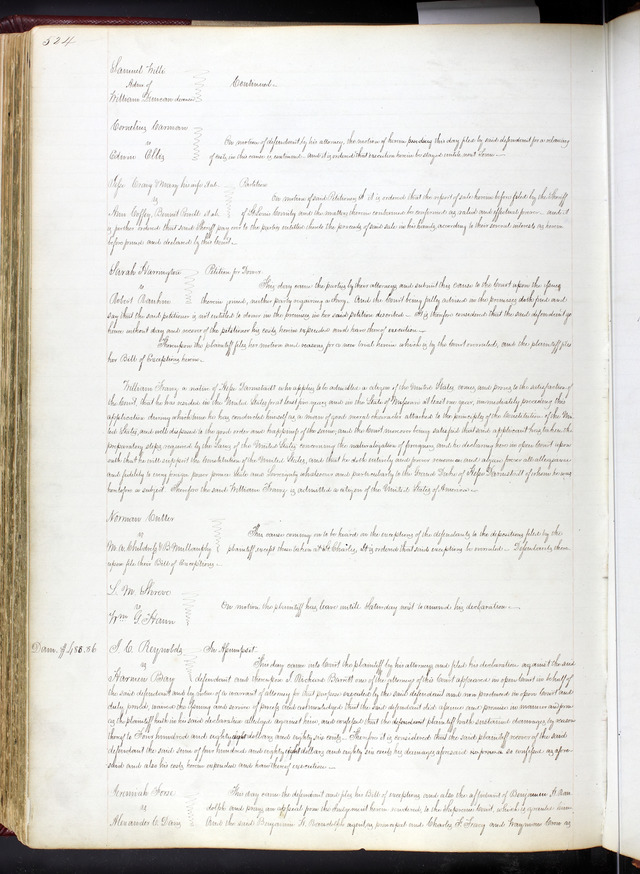 524
Samuel Wells
Admr of
William Duncan deceased
Continued
Cornelius Carman
vs
Edwin Ellis
On motion of defendant by his attorney, the motion of herein pending this day filed by said defendant for a retaxing
of costs in this cause is continued and it is ordered that execution herein be stayed until next Term
Craig & Mary his wife et al
vs
Ann Coffey, et al
Petition
On motion of said Petitioners it is ordered that the report of sale herein before filed by the Sheriff
of St Louis County and the matters therein contained be confirmed as valid and effectual and it
is further ordered that said Sheriff pay over to the parties entitled thereto the proceeds of said sale in his hands according to their several interests as herein
before found and declared by this Court
Sarah Harrington
vs
Robert Rankin
Petition for Dower
This day came the parties by their attorneys and submit this cause to the Court upon the issues
herein joined, neither party requiring a Jury. And the Court being fully advised in the premises doth find and
say that the said petitioner is not entitled to dower in the premises in her said petition described. It is therefore considered that the said defendant go
hence without day and recover of the petitioner his costs herein expended and have thereof execution
Thereupon the plaintiff files her motion and reasons for a new trial herein which is by the Court overruled, and the plaintiff files
her Bill of Exceptions herein
William a native of Hesse Darmstadt who applies to be admitted a citizen of the United States comes and proves to the satisfaction of
the Court, that he has resided in the United States at least five years, and in the State of Missouri at least one year, immediately preceding this
application during which time he has conducted himself as a man of good moral character attached to the principles of the Constitution of the Uni
ted States, and well disposed to the good order and happiness of the same; and the Court moreover being satisfied that said applicant has taken the
preparatory steps required by the Laws of the United States concerning the naturalization of foreigners, and he declaring here in open Court upon
oath that he will support the Constitution of the United States, and that he doth entirely and forever renounce and abjure all allegiance
and fidelity to every foreign power prince State and Sovereignty whatsoever and particularly to the Grand Duke of Hesse Darmstadt of whom he was
heretofore a subject. Therefore the said William is admitted a citizen of the United States of America
Norman Cutter
vs
& B Mullanphy
This cause coming on to be heard on the exceptions of the defendants to the depositions filed by the
plaintiff except those taken at St Charles, It is ordered that said exceptions be overruled. Defendants there
upon file their Bill of Exceptions
L. M.
vs
Wm G
On motion the plaintiff has leave until Saturday next to amend his declaration
Dam. $488.86
J. C. Reynolds
vs
Harmon Bay
In Assumpsit
This day came into Court the plaintiff by his attorney and filed his declaration against the said
defendant and thereupon J Richard Barrett one of the attorneys of this Court appeared in open Court in behalf of
the said defendant and by virtue of a warrant of attorney for that purpose executed by the said defendant and now produced in open Court and
duly proved, waived the issuing and service of process and acknowledged that the said defendant did assume and promise in manner and form
as the plaintiff hath in his said declaration alledged against him, and confessed that the plaintiff hath sustained damages by reason
thereof to Four hundred and eighty eight dollars and eighty six cents. Therefore it is considered that the said plaintiff recover of the said
defendant the said sum of four hundred and eighty eight dollars and eighty six cents his damages aforesaid in form so confessed as afore
said and also his costs herein expended and have thereof execution
Jeremiah
vs
Alexander C
This day came the defendant and files his Bill of exceptions and also the affidavit of Benjamin H Ran
dolph and prays an appeal from the Judgment herein rendered to the Supreme Court, which is granted him
And the said Benjamin H. Randolph agent as principal and Charles F. and as